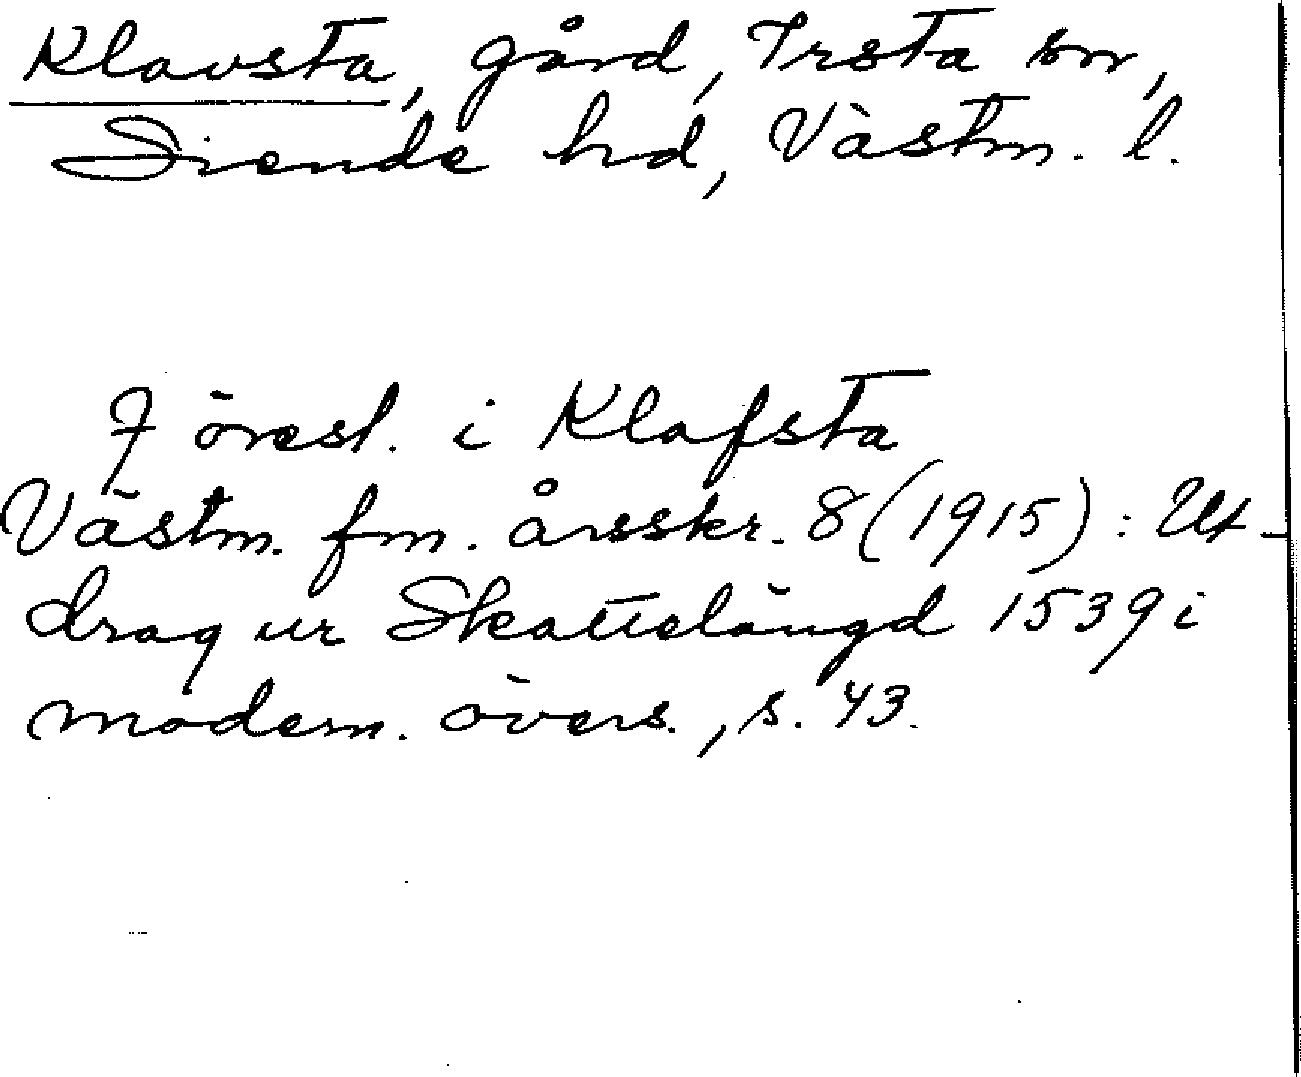 Klavsta, gård, Irsta sn,
Siende hd, Västm. l.
J öresl. i Klafsta
Västm. fm. årsskr. 8 (1915): Ut-
drag ur Skattelängd 1539 i
modern. övers., s. 43.